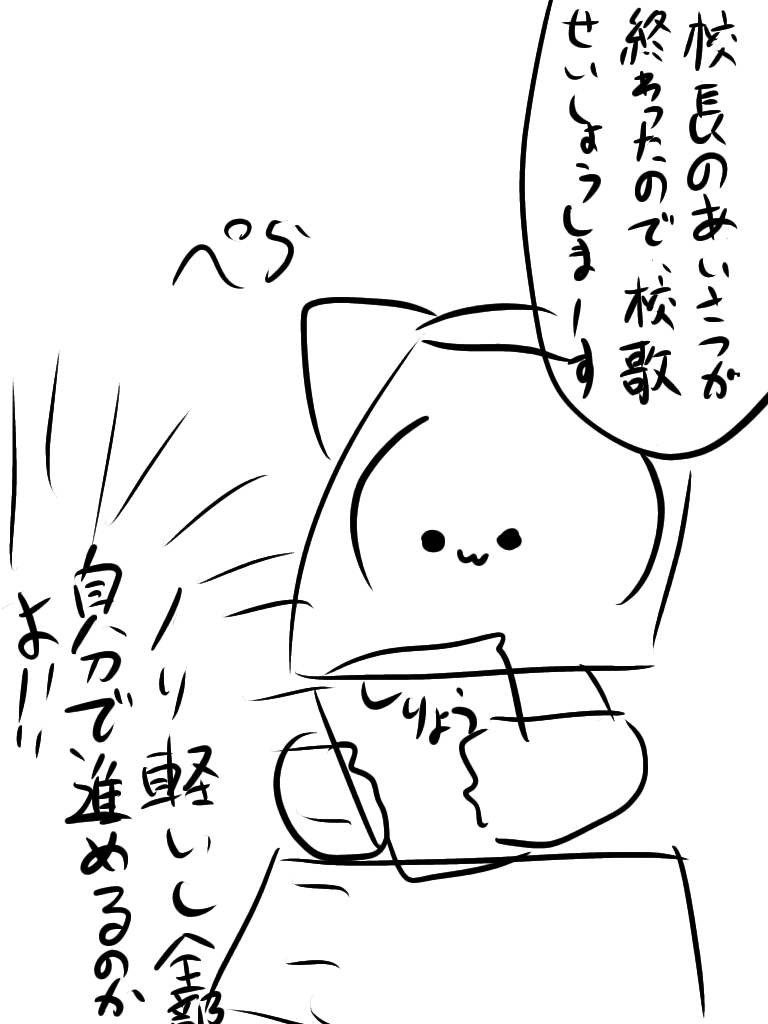 校長のあいさつが
終わったので、校歌
せいしょうしまーす
ぺら
しりょう
ノリ軽いし全部
自分で進めるのか
よ!!